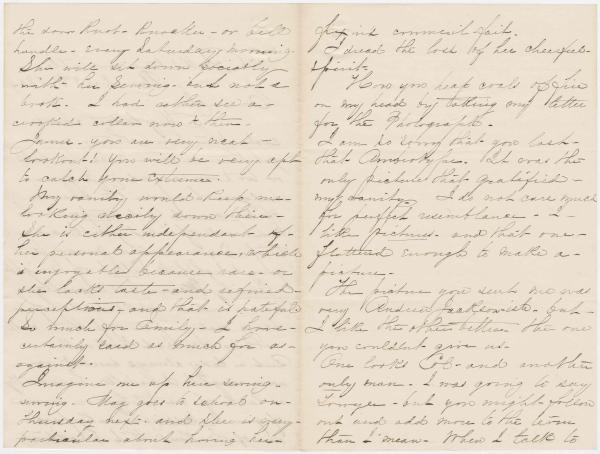 the door Knob - Knocker - or Bell
handle - every Saturday morning.
She will sit down socially
with her sewing - and not a
book. I had rather see a
crooked collar now & then.
Jamie - you are very neat -
lookout! you will be very apt
to catch your extreme.
My vanity would keep me
looking steadily down there -
She is either independent of
her personal appearance, which
is enjoyable because rare - or
she lacks taste - and refined
perceptions, and that is hateful
so much for Emily - I have
certainly said as much for as
against.
Imagine me up here sewing -
sewing. May goes to school on
Thursday next - and she is very
particular about having her
commit fait.
I dread the loss of her cheerful
spirit.
How you heap coals of fire
on my head by taking my letter
for the Photographs -
I am so sorry that you lost
that Ambrotype. It was the
only picture that gratified
my vanity. I do not care much
for perfect resemblance - I
like pictures - and that one
flattered enough to make a
picture -
The picture you sent me was
very Andrew Jacksonish - but
I like the other better - the one
you couldn't give us.
One looks Col - and another
only man. I was going to say
Lawyer - but you might follow
out and add more to the term
than I mean. When I talk to